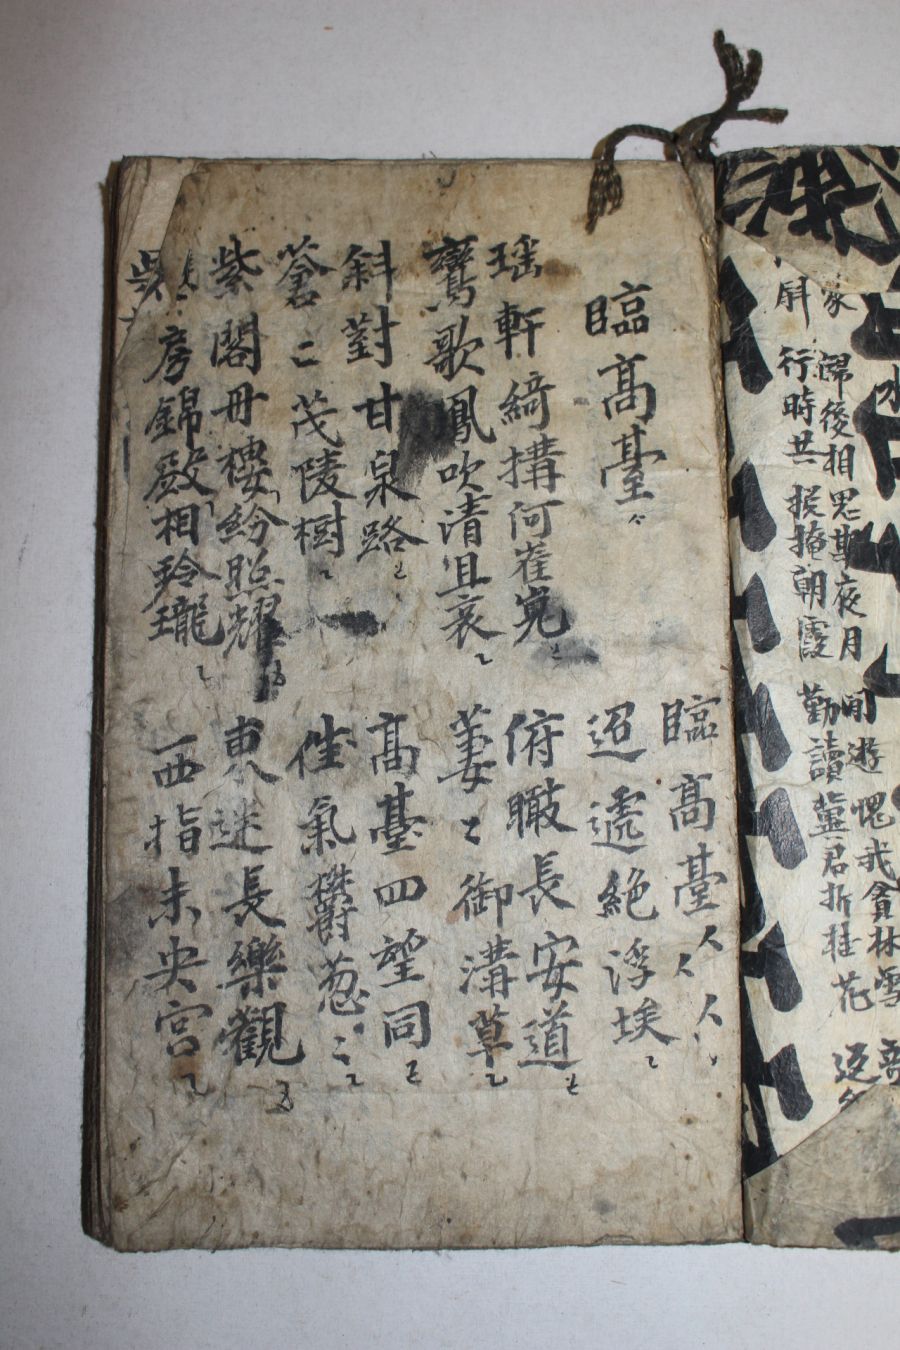 臨高臺
臨高臺〻〻〻
迢遞絶浮埃
瑤軒綺構何崔嵬
鸞歌鳳吹清且哀
俯瞰長安道
萋〻御溝草
斜對甘泉路
蒼〻茂陵樹
高臺四望同
佳氣鬱葱〻
紫閣丹樓紛照耀
房錦殿相玲瓏
東迷長樂觀
西指未央宮
家 歸後相思斯夜月 閒遊愧我貪林雪
行時共 掩朝霞 勤讀 君折桂花